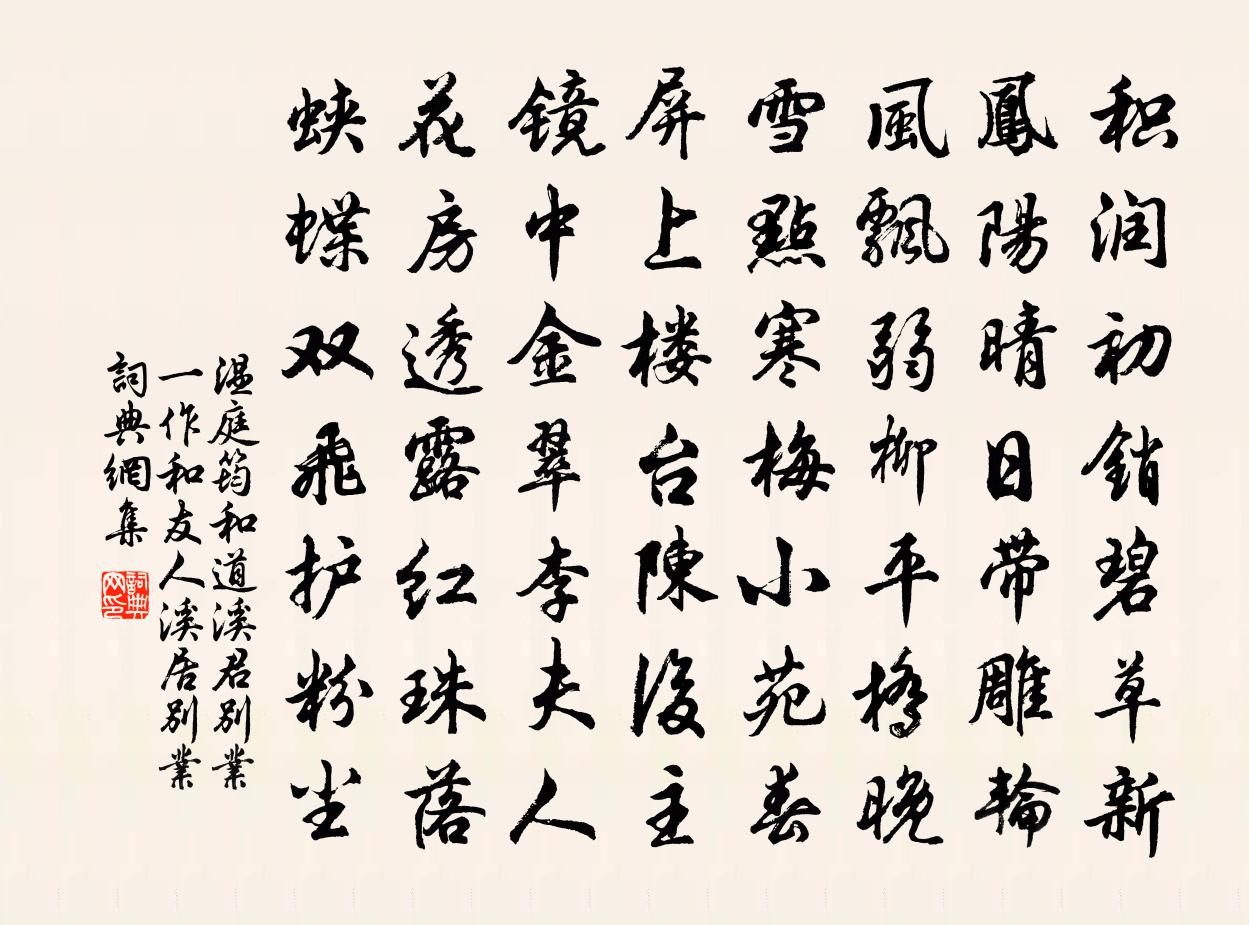 积润初銷碧草新
鳳陽晴日带雕輪
風飄弱柳平橋晚
雪點寒梅小苑春
屏上楼台陳後主
镜中金翠李夫人
花房透露红珠落
蛱蝶双飛护粉尘
温庭筠和道溪君别業
一作和友人溪居别業
詞典網集
詞典网印